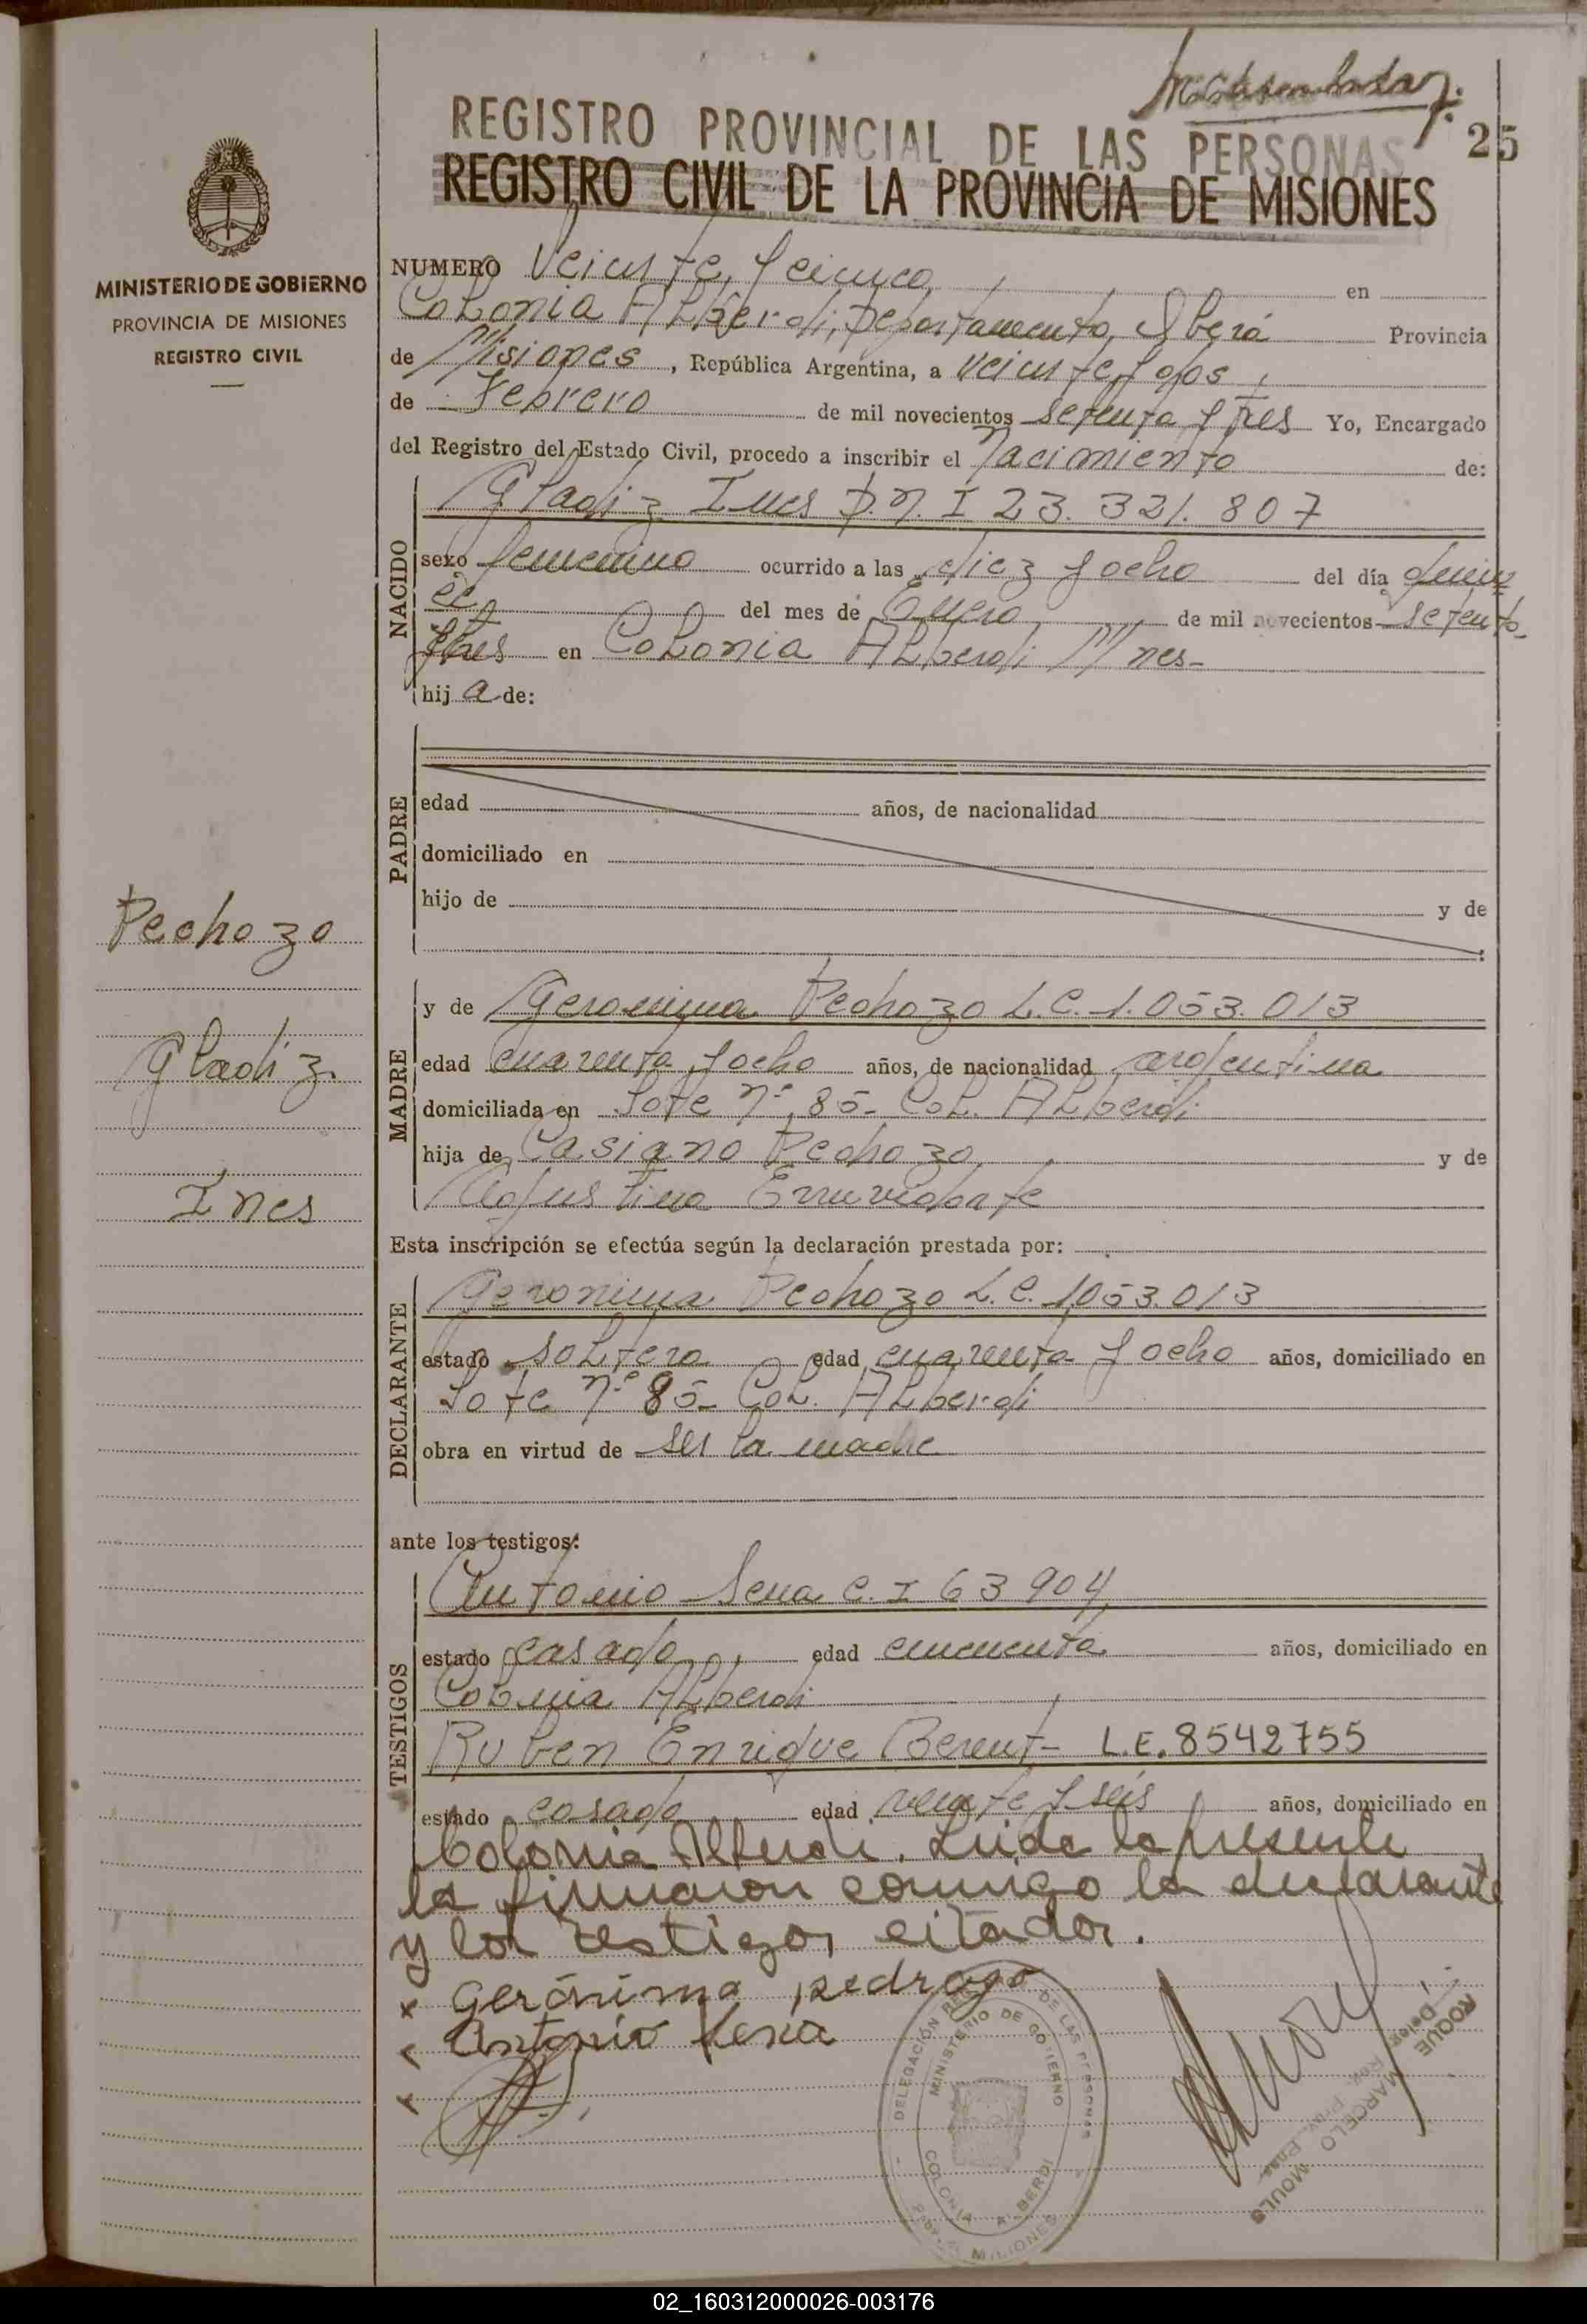 25
REGISTRO PROVINCIAL DE LAS PERSONAS
REGISTRO CIVIL DE LA PROVINCIA DE MISIONES
MINISTERIO DE GOBIERNO
PROVINCIA DE MISIONES
REGISTRO CIVIL
NUMERO Veiente y cinco, en
Colonia Alberdi, Departamento, Oberá Provincia
de Misiones, República Argentina, a Veiente y dos,
de Febrero de mil novecientos setenta y tres Yo, Encargado
del Registro del Estado Civil, procedo a inscribir el Nacimiento de:
NACIDO
Gladiz Ines D.N.I 23.321.807
sexo femenino ocurrido a las diez y ocho del día quin
ce del mes de Enero de mil novecientos setenta
y tres en Colonia Alberdi Mnes-
hij a de:
PADRE
edad años, de nacionalidad
domiciliado en
hijo de y de
Pedrozo
Gladiz
Ines
MADRE
y de Geronima Pedrozo L.C. 1.053.013
edad cuarenta y ocho años, de nacionalidad argentina
domiciliada en Lote Nº 85- Col. Alberdi
hija de Casiano Pedrozo, y de
Agustina
Esta inscripción se efectúa según la declaración prestada por:
DECLARANTE
Geronima Pedrozo L.C. 1.053.013
estado soltera edad cuarenta y ocho años, domiciliado en
Lote Nº 85- Col. Alberdi
obra en virtud de ser la madre
ante los testigos:
TESTIGOS
Antonio Sena C.I 63904,
estado casado, edad cincuenta años, domiciliado en
Colonia Alberdi
Ruben Enrique Berent- L.E. 8542755
estado casado edad veinte y seis años, domiciliado en
Colonia Alberdi. Leida la presente
la firmaron conmigo la declarante
y los testigos citados.
x Gerónima pedrozo
x Antonio Sena
x
DELEGACIÓN REG. PROV. DE LAS PERSONAS
MINISTERIO DE GOBIERNO
COLONIA ALBERDI
MISIONES
ROQUE MARCELO MOULO
02_160312000026-003176